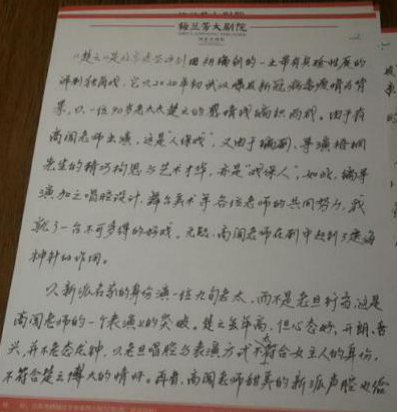 梅兰芳大剧院
《楚云》是北京 评剧团 创编的一出带有实验性质的
评剧独角戏，它以2020年初武汉爆发新冠病毒疫情为背
景，以一位90岁老太太楚云的 编织而成。由于有
高闯老师出演，这是“人保戏”，又由于编剧、导演
先生的精巧构思与艺术才华，亦是“戏保人”，如此，编导
演加之唱腔设计、舞台美术等各位老师的共同努力，成
就了一台不可多得的好戏。无疑，高闯老师在剧中起到了定海
神针的作用。
以新派名家的身份演一位九旬老太，而不是老旦行当，这是
高闯老师的一个表演上的突破。楚云虽年高，但心态好、开朗、
，并不老态龙钟，以老旦唱腔与表演方式不符合女主人的身份，
不符合楚云博大的情怀。再者，高闯老师甜美的新派声腔也给